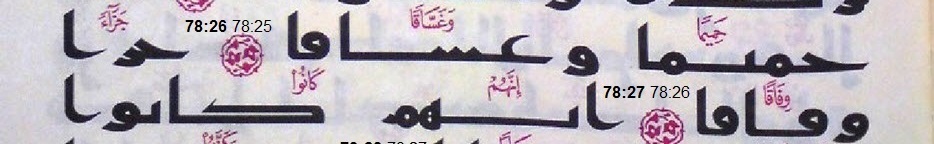 حَمِيمًا وَغَسَّاقًا 78:25 78:26 جَزَآءً
حميما و غساقا جزا
وِفَاقًا 78:26 78:27 إِنَّهُمْ كَانُوا
وفاقا انهم كانوا